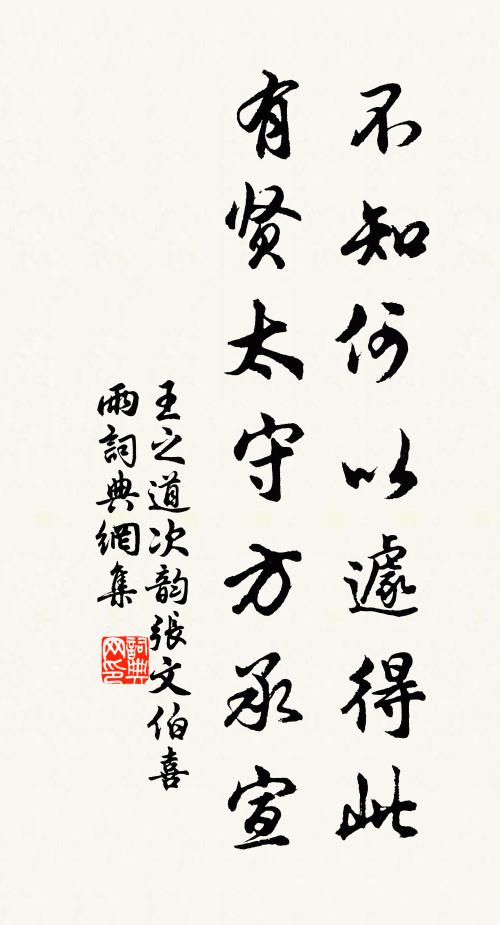 不知何以遽得此
有贤太守方承宣
王之道次韵張文伯喜
雨詞典網集
詞典
网印